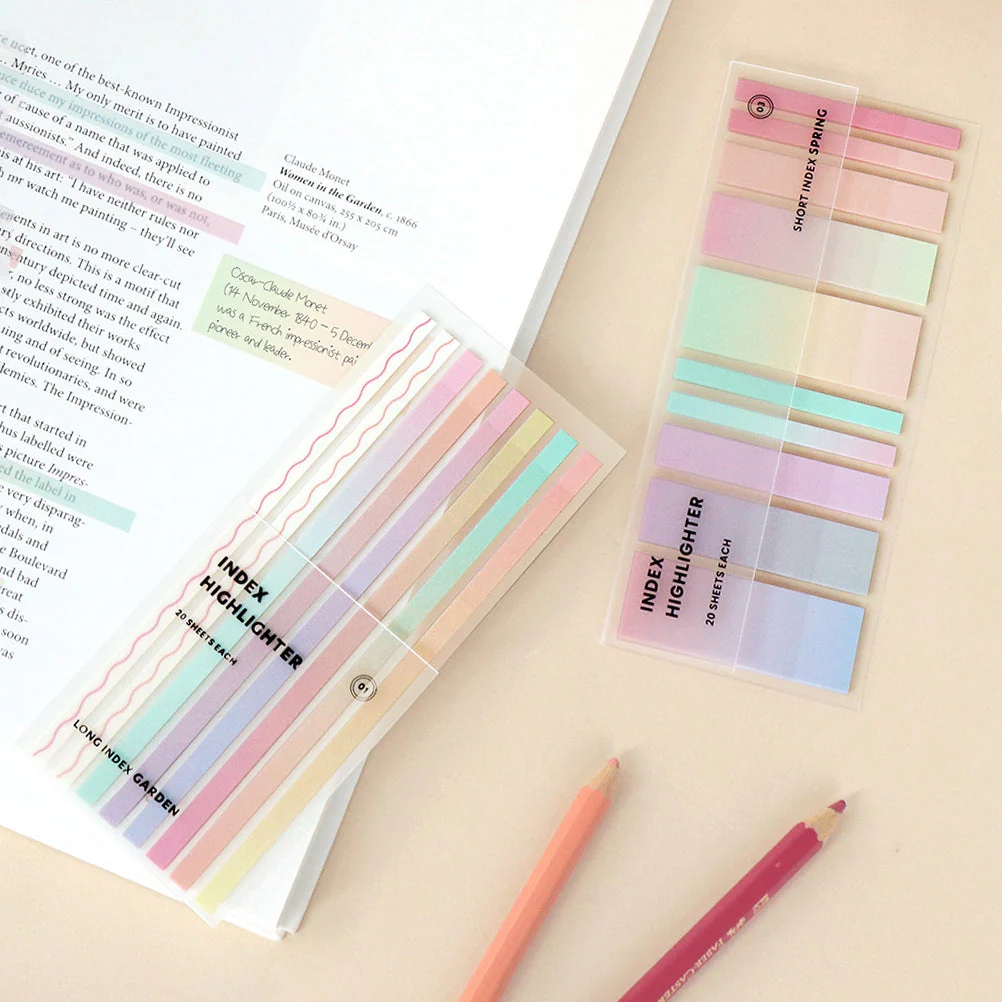 et, one of the best-known Impressionist
… My only merit is to have painted
my impressions of the most fleeting
of cause of a name that was applied to
And indeed, there is no
as to who was, or was not,
his art: "I have neither rules nor
watch me painting – they'll see
ents in art is no more clear-cut
directions. This is a motif that
century depicted time and again.
no less strong was the effect
exhibited their works
worldwide, but showed
ning and of seeing. In so
revolutionaries, and were
The Impression-
art that started in
thus labelled were
picture Impres-
ed the label in
very disparag-
when, in
dals and
Boulevard
nd bad
reat
s dis-
soon
was
Claude Monet
Women in the Garden, c. 1866
Oil on canvas, 255 x 205 cm
(100½ x 80¾ in.)
Paris, Musée d'Orsay
Oscar-Claude Monet
(14 November 1840 – 5 Decem
was a French impressionist pai
pioneer and leader.
INDEX
HIGHLIGHTER
20 SHEETS EACH
01
LONG INDEX GARDEN
03
SHORT INDEX SPRING
INDEX
HIGHLIGHTER
20 SHEETS EACH
FABER-CASTE